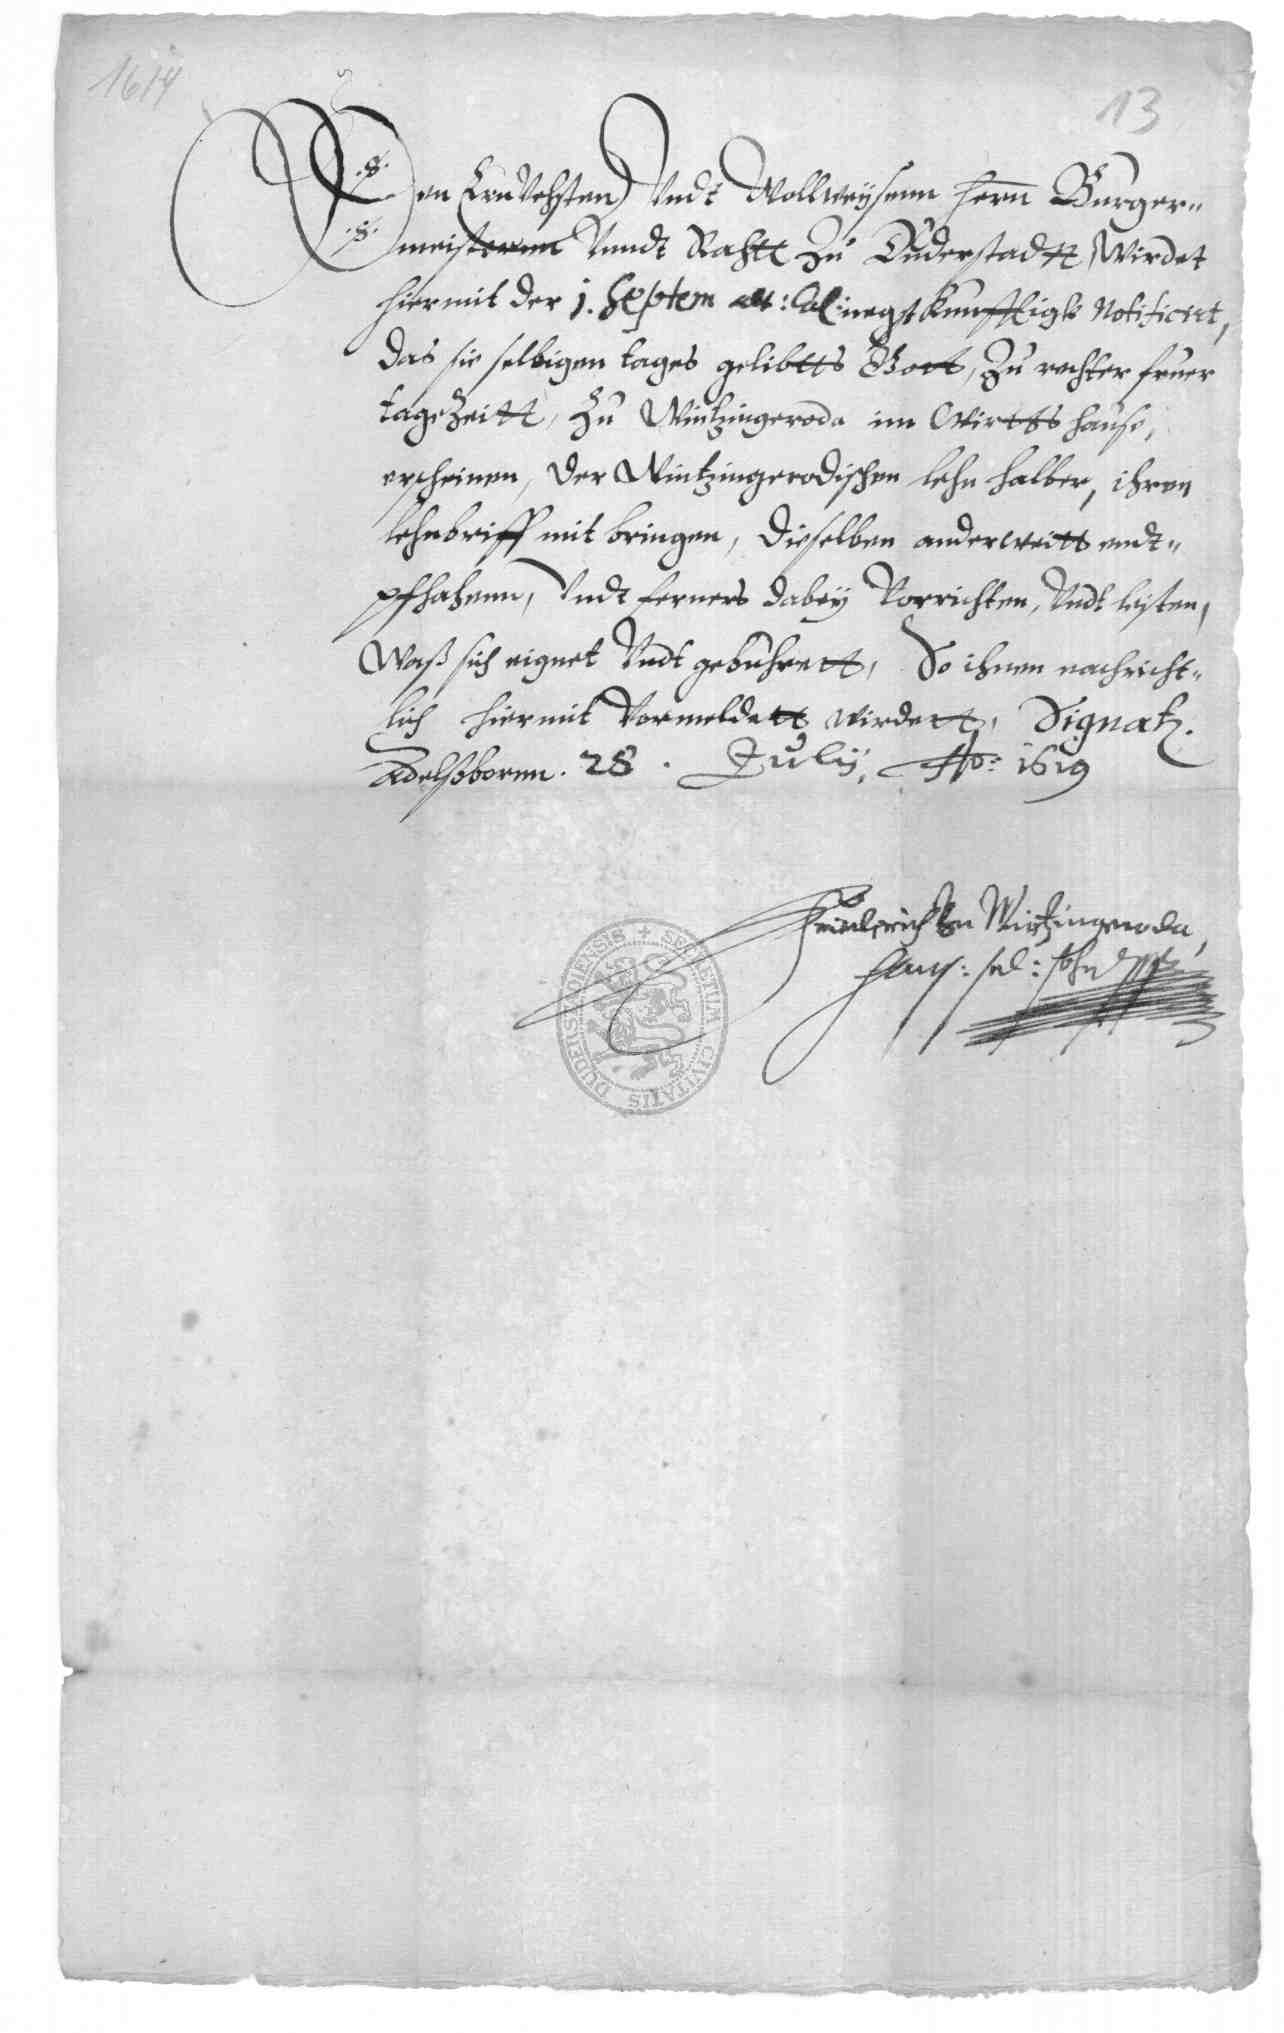 1614
13
Den Ernvehsten Undt Wollweysenn Herrn Burger-
meisternn Unndt Rahtt Zu Duderstadtt, Wirdet
hiermit der 1. Septem alt: Cal: negstkunfftigk Notificirt,
das sie selbigen tages geliebtts Gott, Zu rechter fruer
tageZeitt, Zu Wintzingeroda im Wirttshause,
erscheinen, der Wintzingerodischen lehn halber, ihren
lehnbrieff mit bringen, dieselben anderweitt endt-
pfhahenn, Undt ferners dabey Vorrichten, Undt leisten,
Waß sich eignet Undt gebuhrett, So ihnen nachricht-
lich hiermit Vormeldett wirdett, Signat.
Adelßbornn. 28. July, Ao: 1619
Friederich von Wintzingeroda,
Hans: sel: sohn
SECRETUM CIVITATIS DUDERSTADIENSIS